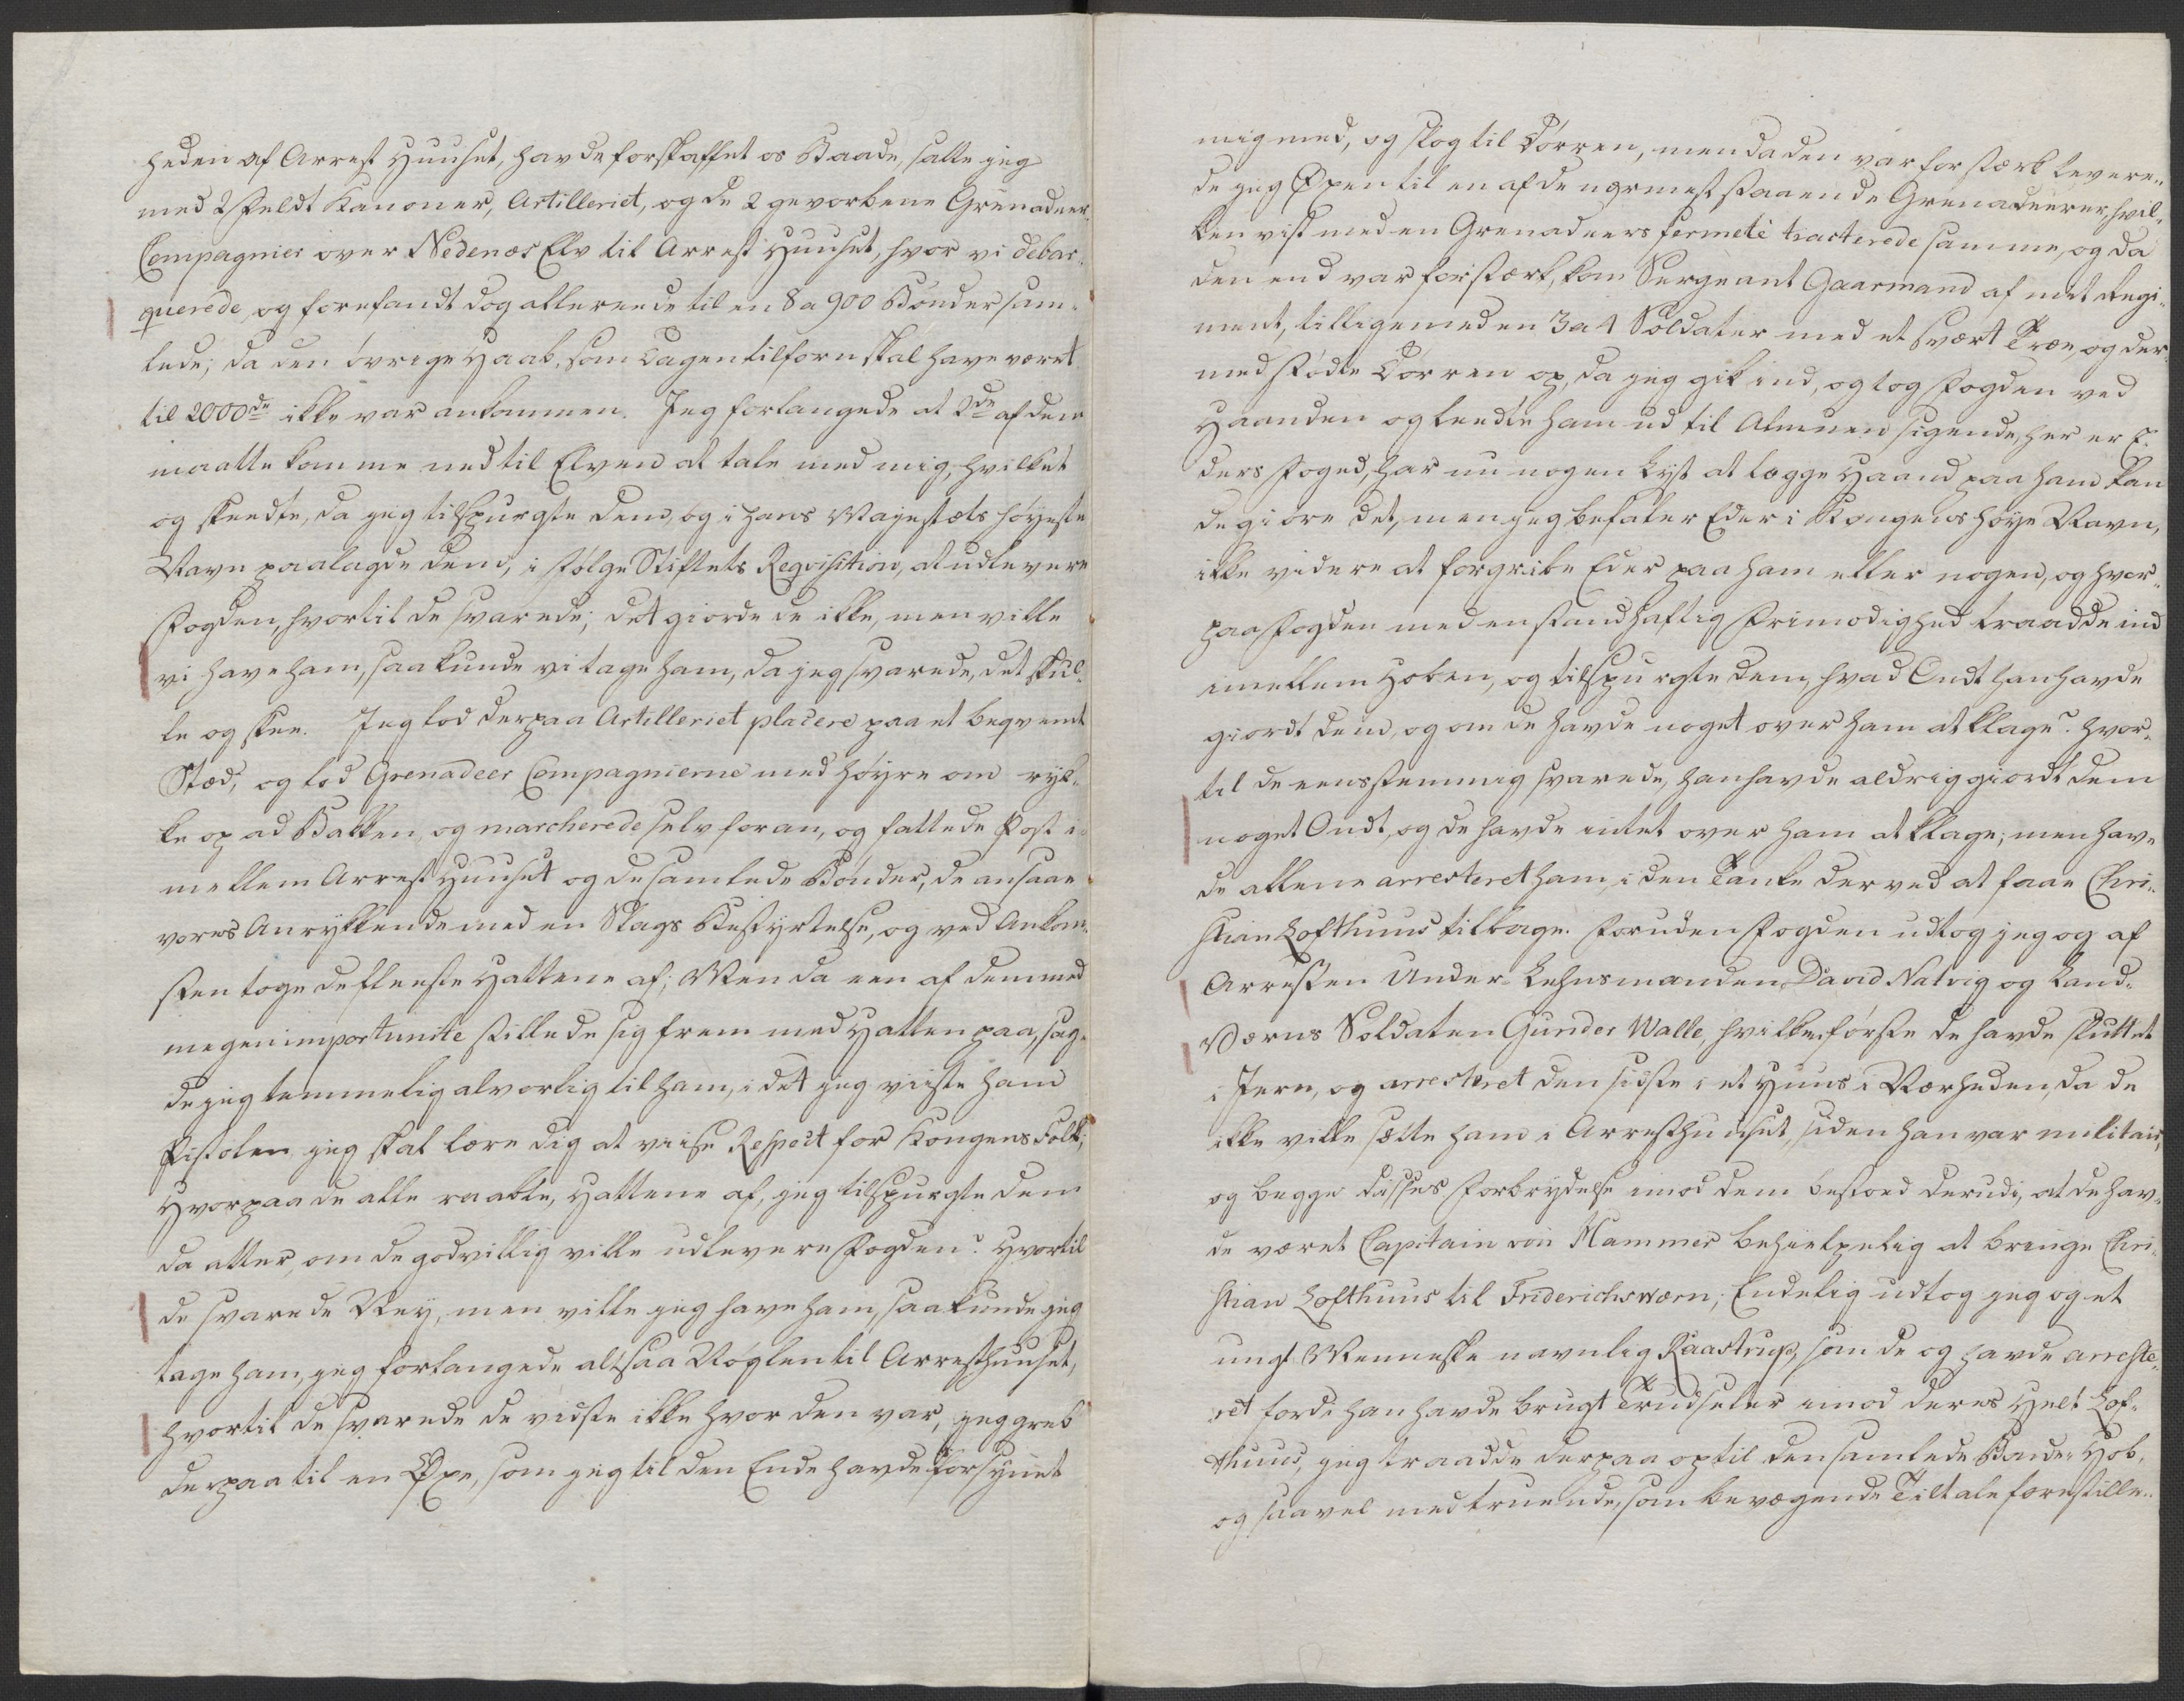 heden af Arrest Huuset, havde forskaffet os Baade, satte jeg
med 2 Feldt Kanoner, Artilleriet, og de 2 gevorbene Grenadeer
Compagnier over Nedenæs Elv til Arrest Huuset, hvor vi debar-
querede, og forefandt dog allereede til en 8 a 900 Bønder sam-
lede; da den øvrige Haab, som Dagen tilforn skal have været
til 2000de ikke var ankommen. Jeg forlangede at 2de af dem
maatte komme ned til Elven at tale med mig, hvilket
og skeedte, da jeg tilspurgte dem, og i Hans Majestæts høyeste
Navn paalagde dem, i følge Stiftets Reqvisition, at udlevere
Fogden, hvortil de svarede; det giorde de ikke, men ville
vi have ham, saa kunde vi tage ham, da jeg svarede, det skul-
le og skee. Jeg lod derpaa Artilleriet placere paa et beqvemt
Stæd, og lod Grenadeer Compagnierne med høyre om ryk-
ke op ad Bakken, og marcherede selv foran, og fattede Post i-
mellem Arrest Huuset og de samlede Bønder, de ansaae
vores Anrykkende med en Slags Bestyrtelse, og ved Ankom-
sten toge de fleeste Hattene af; Men da een af dem med
megen importunite stillede sig frem med Hatten paa, sag-
de jeg temmelig alvorlig til ham, i det jeg viiste ham
Pistolen jeg skal lære dig at viise Respect for Kongens Folk;
Hvorpaa de alle raabte, Hattene af, jeg tilspurgte dem
da atter, om de godvillig ville udlevere Fogden? Hvortil
de svarede Ney, men ville jeg have ham, saa kunde jeg
tage ham, jeg forlangede altsaa Nøglen til Arresthuuset,
hvortil de svarede de vidste ikke hvor den var, jeg greb
derpaa til en Øxe, som jeg til den Ende havde forsynet
mig med, og slog til Dørren, men da den var for stærk levere-
de jeg Øxen til en af de nærmest staaende Grenadeerer, hvil-
ken vist med en Grenadeers fermeté tracterede samme, og da
den end var for stærk, kom Sergeant Gaarmand af mit Regi-
ment, tilligemed en 3 a 4 Soldater med et svært Træ, og der-
med stødte Dørren op, da jeg gik ind, og tog Fogden ved
Haanden og leedte ham ud til Almuen sigende, her er E-
ders Foged, har nu nogen Lyst at lægge Haand paa ham kan
de giøre det, men jeg befaler Eder i Kongens høye Navn,
ikke videre at forgribe Eder paa ham eller nogen, og hvor-
paa Fogden med en standhaftig Frimodighed traadde ind
imellem Hoben, og tilspurgte dem, hvad Ondt han havde
giordt dem, og om de havde noget over ham at klage? hvor-
til de eensstemmig svarede, han havde aldrig giordt dem
noget Ondt, og de havde intet over ham at klage; men hav-
de allene arresteret ham, i den Tanke derved at faae Chri-
stian Lofthuus tilbage. Foruden Fogden udtog jeg og af
Arresten Under-Lehnsmanden David Natvig og Land-
Værns Soldaten Gunder Walle, hvilken første de havde sluttet
i Jern, og arresteret den sidste i et Huus i Nærheden, da de
ikke ville sætte ham i Arresthuuset, siden han var militair,
og begge disses Forbrydelse imod dem bestoed derudi, at de hav-
de været Capitain von Hammer behielpelig at bringe Chri-
stian Lofthuus til Friderichsværn; Endelig udtog jeg og et
ungt Menneske navnlig Raastrup, som de og havde arreste-
ret fordi han havde brugt Trudseler imod deres Helt Lof-
thuus, jeg traadde derpaa op til den samlede Bonde-Hob,
og saavel med truende, som bevægende Tiltale forestille-